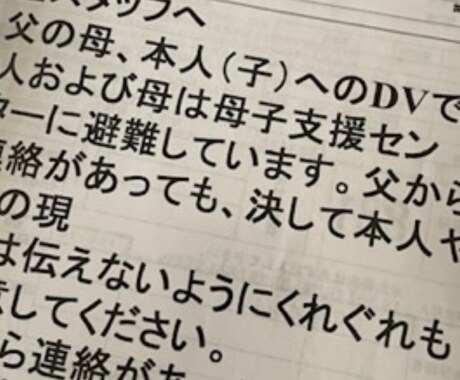 スタッフへ
父の母、本人(子)へのDVで
人および母は母子支援セン
ターに避難しています。父から
連絡があっても、決して本人や
の現
は伝えないようにくれぐれも
意してください。
ら連絡があ